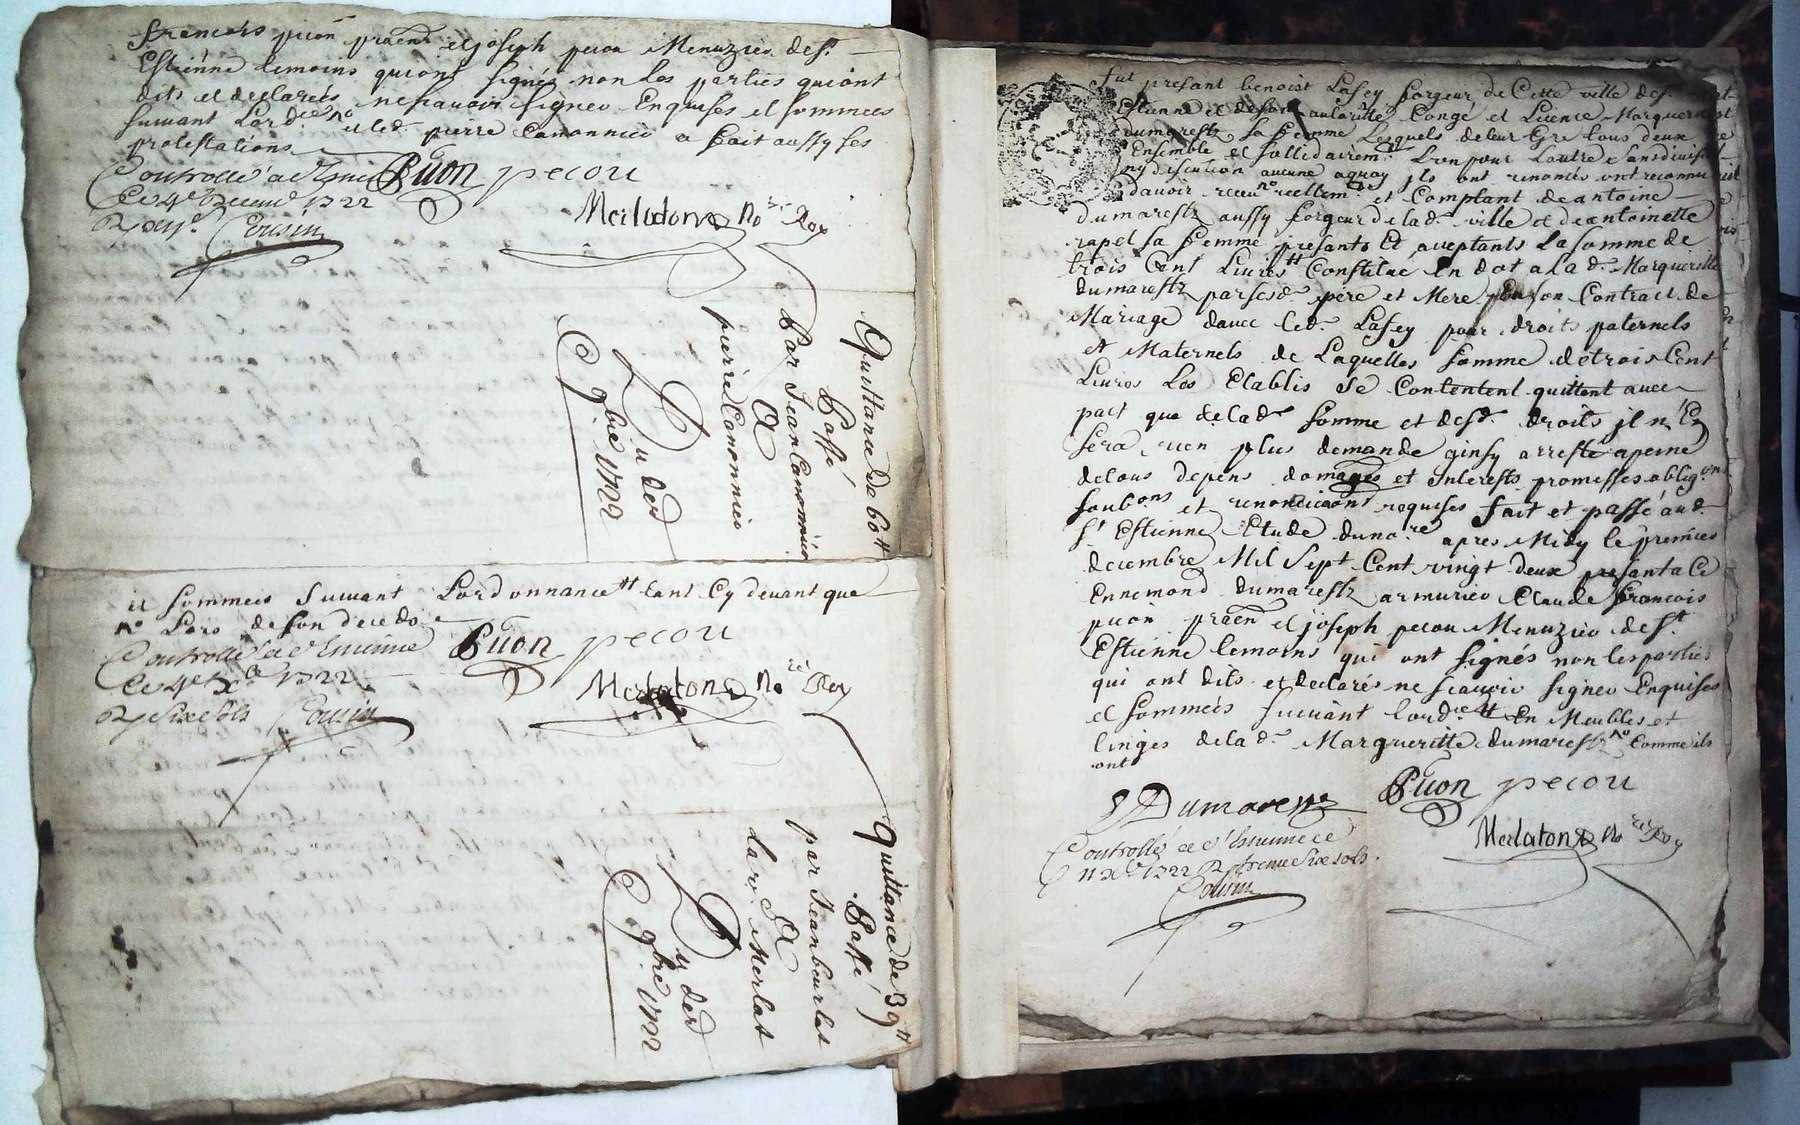 francois puon praᵉⁿ et joseph pecou Menuzier de Sᵗ
Estienne temoins qui ont signés non les parties qui ont
dits et declarés ne scavoir signer Enquises et sommees
suivant Lordᶜᵉ nᵒ et led. pierre Canonnier a fait aussy ses
protestations
Puon pecou
Controllé a Sᵗ Estienne
ce 4ᵉ decemᵉ 1722
Cousin
Merlaton noʳᵉ Roy
Quittance de 60ᵗᵗ
Passé
Par Jean Canonnier
A
pierre Canonnier
Du der
9bre 1722
et sommees suivant Lordonnanceᵗᵗ tant Cy devant que
nᵒ Lors de son deced
Controllé a Sᵗ Estienne
ce 4ᵉ Xᵇʳᵉ 1722
R. six sols Cousin
Puon pecou
Merlaton noʳᵉ Roy
Quittance de 39ᵗᵗ
Passé
par Jean beurlat
A
lar. Merlat
Du der
9bre 1722
fut presant benoist Lafey forgeur de Cette ville de Sᵗ
Estienne et de son autoritté Congé et Licence Margueritte
dumarestz sa femme Lesquels de leur Gre tous deux
Ensemble et sollidairemᵗ Lun pour Lautre sans division
ny discution aucune aquoy ils ont renoncés ont reconnu
davoir receu nᵒ reellemᵗ et Comptant de antoine
dumarestz aussy forgeur de lad. ville et de antoinette
rapel sa femme presants Et aceptants La somme de
trois Cent Livresᵗᵗ Constitué En dot a la d. Margueritte
dumarestz par sesd. pere et Mere par son Contract de
Mariage davec led. Lafey pour droits paternels
et Maternels de Laquelles somme de trois Cent
Livres Les Etablis se Contentent quittent avec
pact que de lad. somme et desd. droits il n'En
sera rien plus demandé ainsy arresté apeine
de tous depens domages et Interests promesses obligᵒⁿˢ
soubᵒⁿˢ et renonciaōns requises fait et passé aud.
Sᵗ Estienne Etude du noʳᵉ apres Midy le premier
decembre Mil Sept Cent vingt deux presanta Ce
Ennemond dumarestz armurier Claude francois
puon praᵉⁿ et joseph pecou Menuzier de Sᵗ
Estienne temoins qui ont signés non les parties
qui ont dits et declarés ne scavoir signer Enquises
et sommees suivant lordᶜᵉ ᵗᵗ En Meubles et
linges de la d. Margueritte dumarestz nᵒ Comme ils
ont
E Dumarestz
Puon pecou
Controllé a Sᵗ Estienne ce
11 Xᵇʳᵉ 1722 R trente six sols.
Cousin
Merlaton noʳᵉ Roy